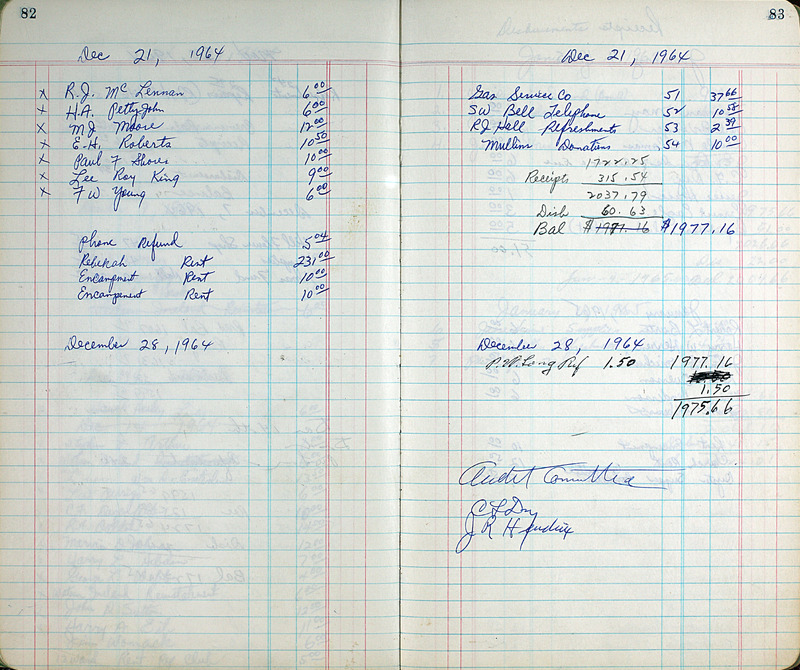 82
Dec 21, 1964
x R.J. Mc Lennan 6 00
x H.A. Pettyjohn 6 00
x M J Moore 12 00
x E.H. Roberts 10 50
x Paul F Shores 10 00
x Lee Roy King 9 00
x F W Young 6 00
Phone Refund 5 04
Rebekah Rent 231 00
Encampment Rent 10 00
Encampment Rent 10 00
December 28, 1964
83
Dec 21, 1964
Gas Service Co 51 37 66
SW Bell Telephone 52 10 58
RJ Hell Refreshments 53 2 39
Mullins Donations 54 10 00
1722.25
Receipts 315.54
2037.79
Disb 60.63
Bal $1977.16 $1977.16
December 28, 1964
P.W. Long Ref 1.50 1977.16
1.50
1975.66
Audit Committee
C L Dry
J R Hendrix